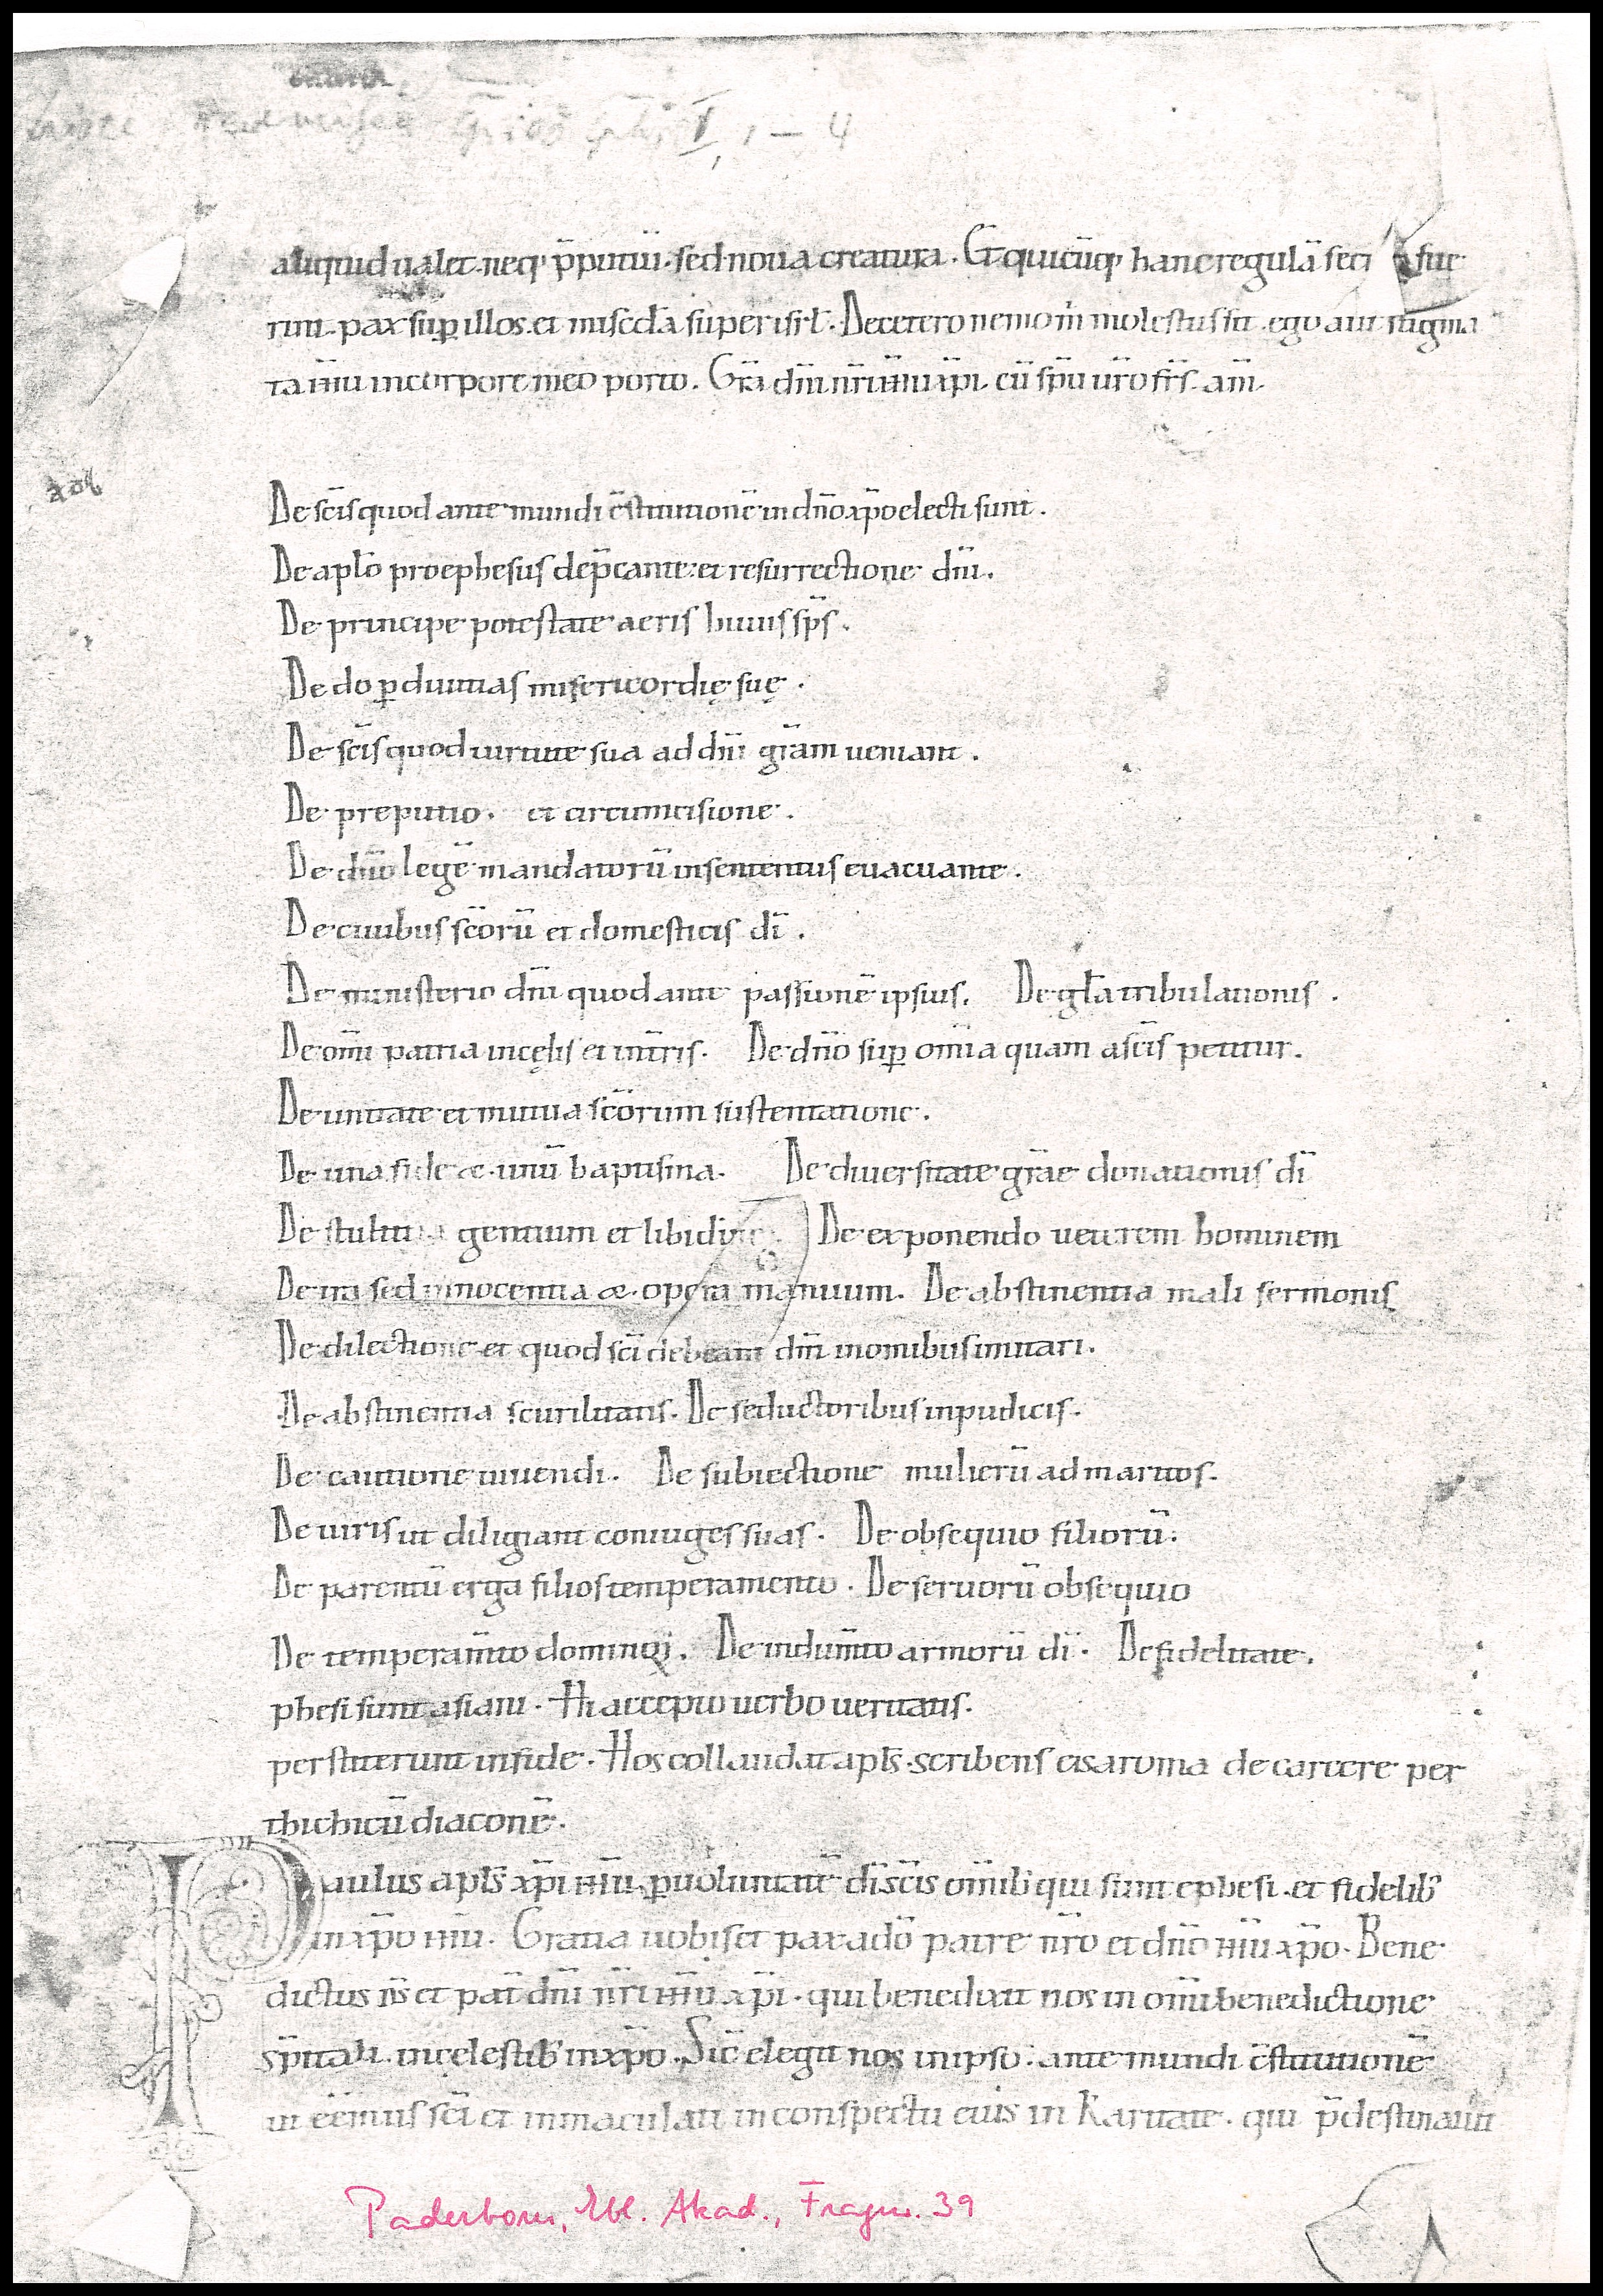 I, 1 – 4
aliquid ualet. neq; p̄putiū. sed noua creatura. Et quicūq; hanc regulā secu fue
rint. pax sup illos. et misc̄dā super isrl̄. De cetero nemo m̄ molestus sit. ego aut̄ stigma
ta iħu in corpore meo porto. Grā dn̄i nr̄i iħu xp̄i. cū sp̄u ur̄o fr̄s. am̄.
De sc̄is quod ante mundi c̄stitutionē in dn̄o xp̄o electi sunt.
De aplō pro ephesus dep̄cante. et resurrectione dn̄i.
De principe potestate aeris huius sp̄s.
De do p diuitias misericordię suę.
De sc̄is quod uirtute sua ad dn̄i grām ueniant.
De preputio. et circumcisione.
De dn̄o legē mandatorū in sententiis euacuante.
De ciuibus sc̄orū et domesticis dī.
De ministerio dn̄i quod ante passionē ipsius. De glā tribulationis.
De om̄i patria in cęlis et in t̄ris. De dn̄o sup om̄ia quam a sc̄is petitur.
De unitate et mutua sc̄orum sustentatione.
De una fide æ. unū baptisma. De diuersitate grāe donationis dī
De stultitia gentium et libidine. De exponendo ueterem hominem
De ira sed innocentia æ. opera manuum. De abstinentia mali sermonis
De dilectione et quod sc̄i debeant dn̄m in omibus imitari.
De abstinentia scurilitatis. De seductoribus inpudicis.
De cautione uiuendi. De subiectione mulierū ad maritos.
De uiris ut diligant coniuges suas. De obsequio filiorū.
De parentū erga filios temperamento. De seruorū obsequio
De temperam̄to dominoꝝ. De indum̄to armorū dī. De fidelitate.
phesi sunt asiani. Hi accepto uerbo ueritatis.
perstiterunt in fide. Hos collaudat apls̄. scribens eis a roma de carcere per
thichicū diaconē.
Paulus apls̄ xp̄i iħu. p uoluntatē dī sc̄is om̄ib; qui sunt ephesi. et fidelib;
in xp̄o iħu. Gratia uobis et pax a dō patre nr̄o et dn̄o iħu xp̄o. Bene
dictus ds̄ et pat̄ dn̄i nr̄i iħu xp̄i. qui benedixit nos in om̄i benedictione
sp̄itali. in cęlestib; in xp̄o. Sic̄ elegit nos in ipso. ante mundi c̄stitutionē
ut eēmus sc̄i et inmaculati in conspectu eius in karitate. qui p̄destinauit
Paderborn, Ebf. Akad., Fragm. 39